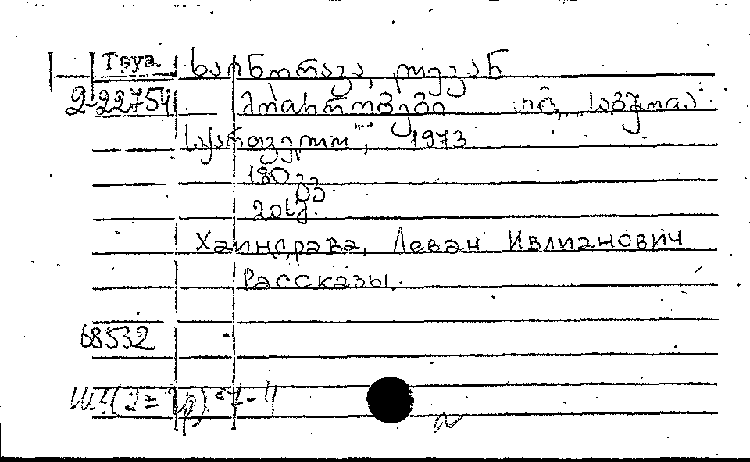 Груз. ხაინდრავა, ლევან
2-22754 მოთხრობები თბ., "საბჭოთა
საქართველო", 1973
180 გვ
20 სმ.
Хаиндрава, Леван Ивлианович
Рассказы.
68532